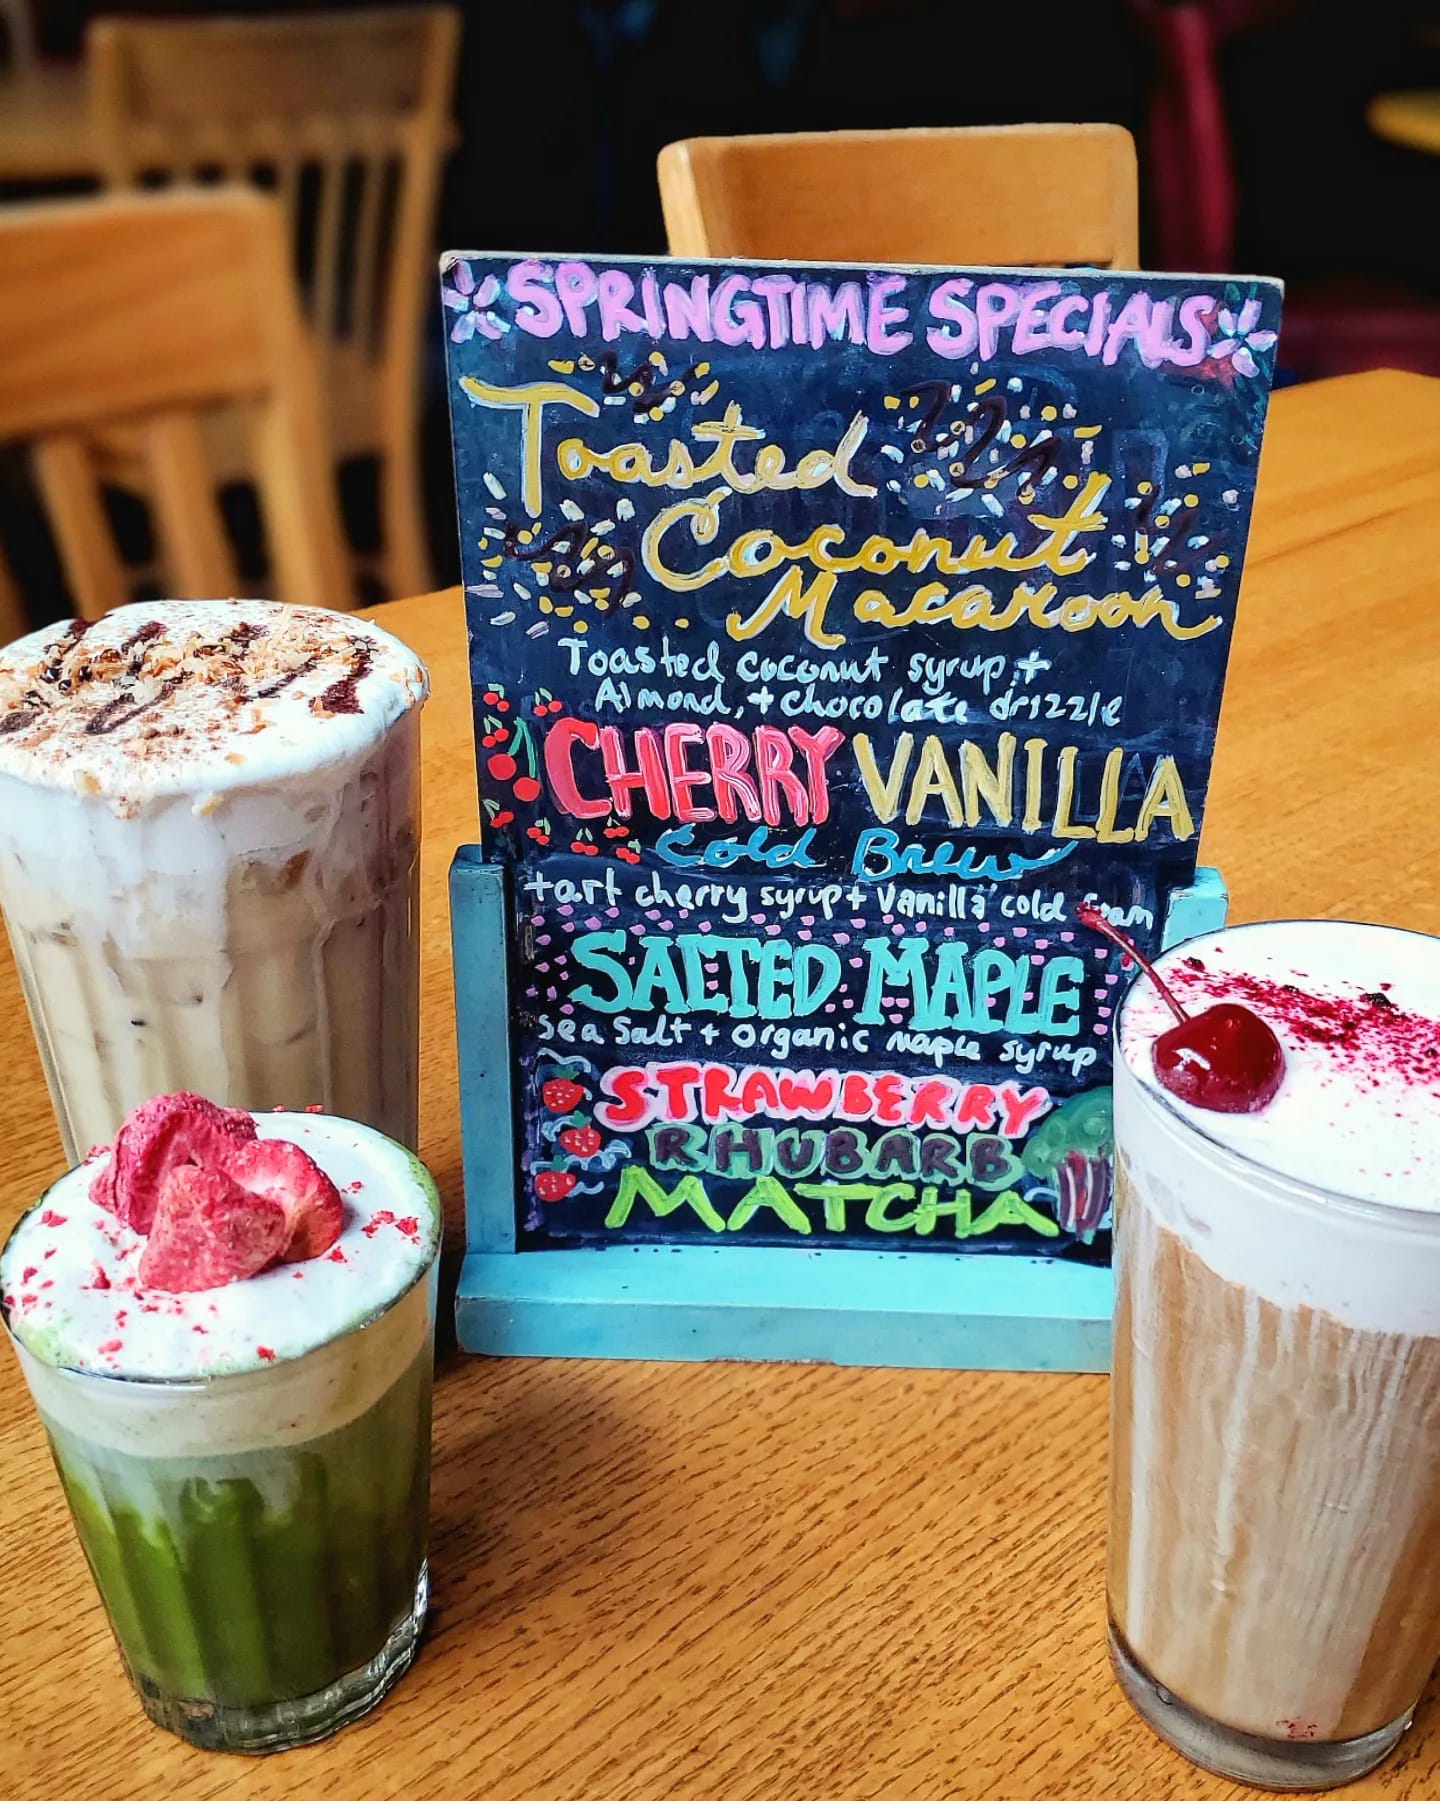 SPRINGTIME SPECIALS
Toasted
Coconut
Macaroon
Toasted coconut syrup +
Almond, + chocolate drizzle
CHERRY VANILLA
Cold Brew
tart cherry syrup + vanilla cold foam
SALTED MAPLE
sea salt + organic maple syrup
STRAWBERRY
RHUBARB
MATCHA